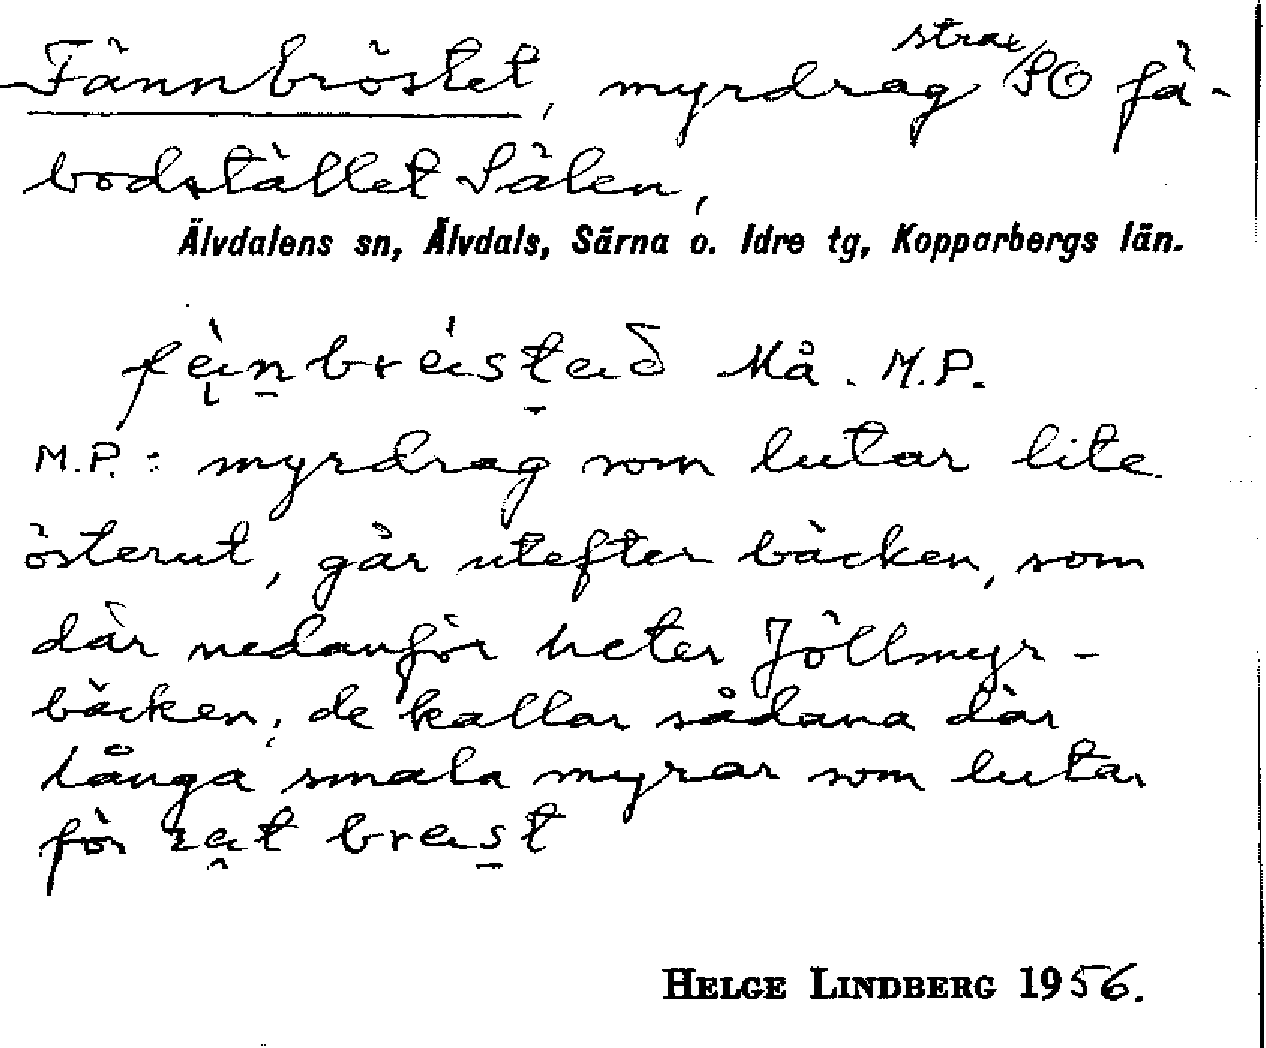 Fännbröstet, myrdrag strax SO fä-
bodstället Sälen,
Älvdalens sn, Älvdals, Särna o. Idre tg, Kopparbergs län.
Må. M.P.
M.P.: myrdrag som lutar lite
österut, går utefter bäcken, som
där nedanför heter Jöllmyr-
bäcken; de kallar sådana där
långa smala myrar som lutar
för breist
HELGE LINDBERG 1956.